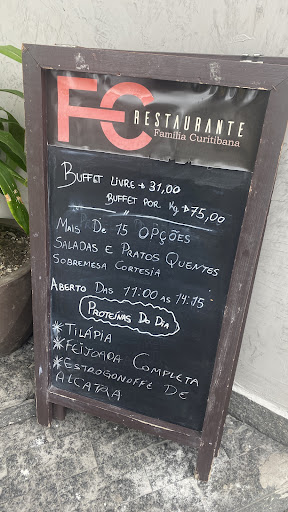 FC
RESTAURANTE
Família Curitibana
BUFFET LIVRE $ 31,00
BUFFET POR KG $ 75,00
MAIS DE 15 OPÇÕES
SALADAS E PRATOS QUENTES
SOBREMESA CORTESIA
ABERTO DAS 11:00 AS 14:15
PROTEÍNAS DO DIA
* TILÁPIA
* FEIJOADA COMPLETA
* ESTROGONOFFE DE
ALCATRA